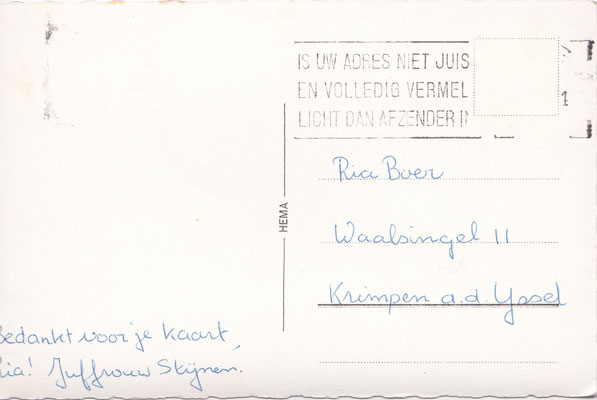 IS UW ADRES NIET JUIS
EN VOLLEDIG VERMEL
LICHT DAN AFZENDER I
HEMA
Ria Boer
Waalsingel 11
Krimpen a.d. Yssel
Bedankt voor je kaart,
Ria! Juffrouw Stijnen.